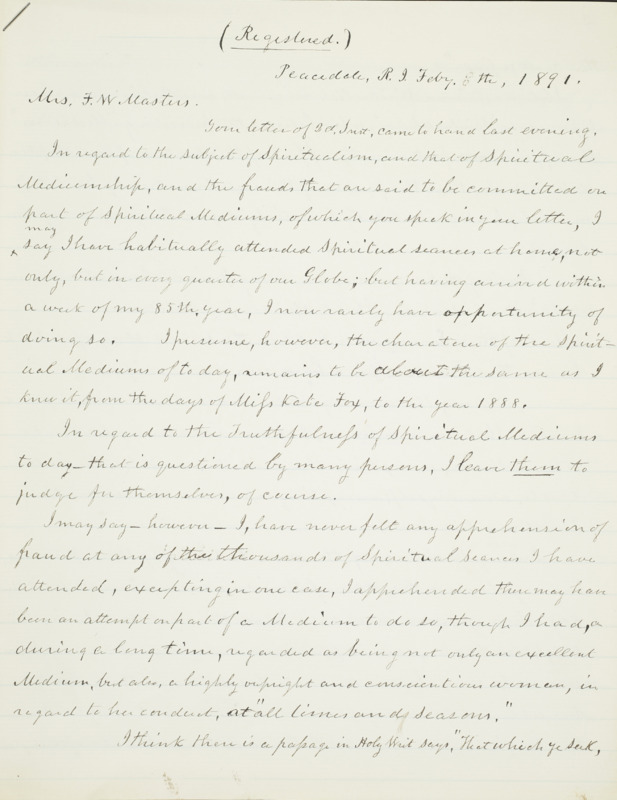 (Registered.)
Peacedale, R. I. Feby. 8th, 1891.
Mrs. F. W. Masters.
Your letter of 3d, Inst, came to hand last evening.
In regard to the subject of Spiritualism, and that of Spiritual
Mediumship, and the frauds that are said to be committed on
part of Spiritual Mediums, of which you speak in your letter, I
may
say I have habitually attended Spiritual seances at home, not
only, but in every quarter of our Globe; but having arrived within
a week of my 85th, year, I now rarely have opportunity of
doing so. I presume, however, the charater of the Spirit-
ual Mediums of to day, remains to be about the same as I
knew it, from the days of Miss Kate Fox, to the year 1888.
In regard to the Truthfulness of Spiritual Mediums
to day - that is questioned by many persons, I leave them to
judge for themselves, of course.
I may say - however - I, have never felt any apprehension of
fraud at any of the thousands of Spiritual seances I have
attended, excepting in one case, I apprehended there may have
been an attempt on part of a Medium to do so, though I had,
during a long time, regarded as being not only an excellent
Medium, but also, a highly upright and conscientious woman, in
regard to her conduct, at "all times and seasons."
I think there is a passage in Holy Writ says, "That which ye seek,